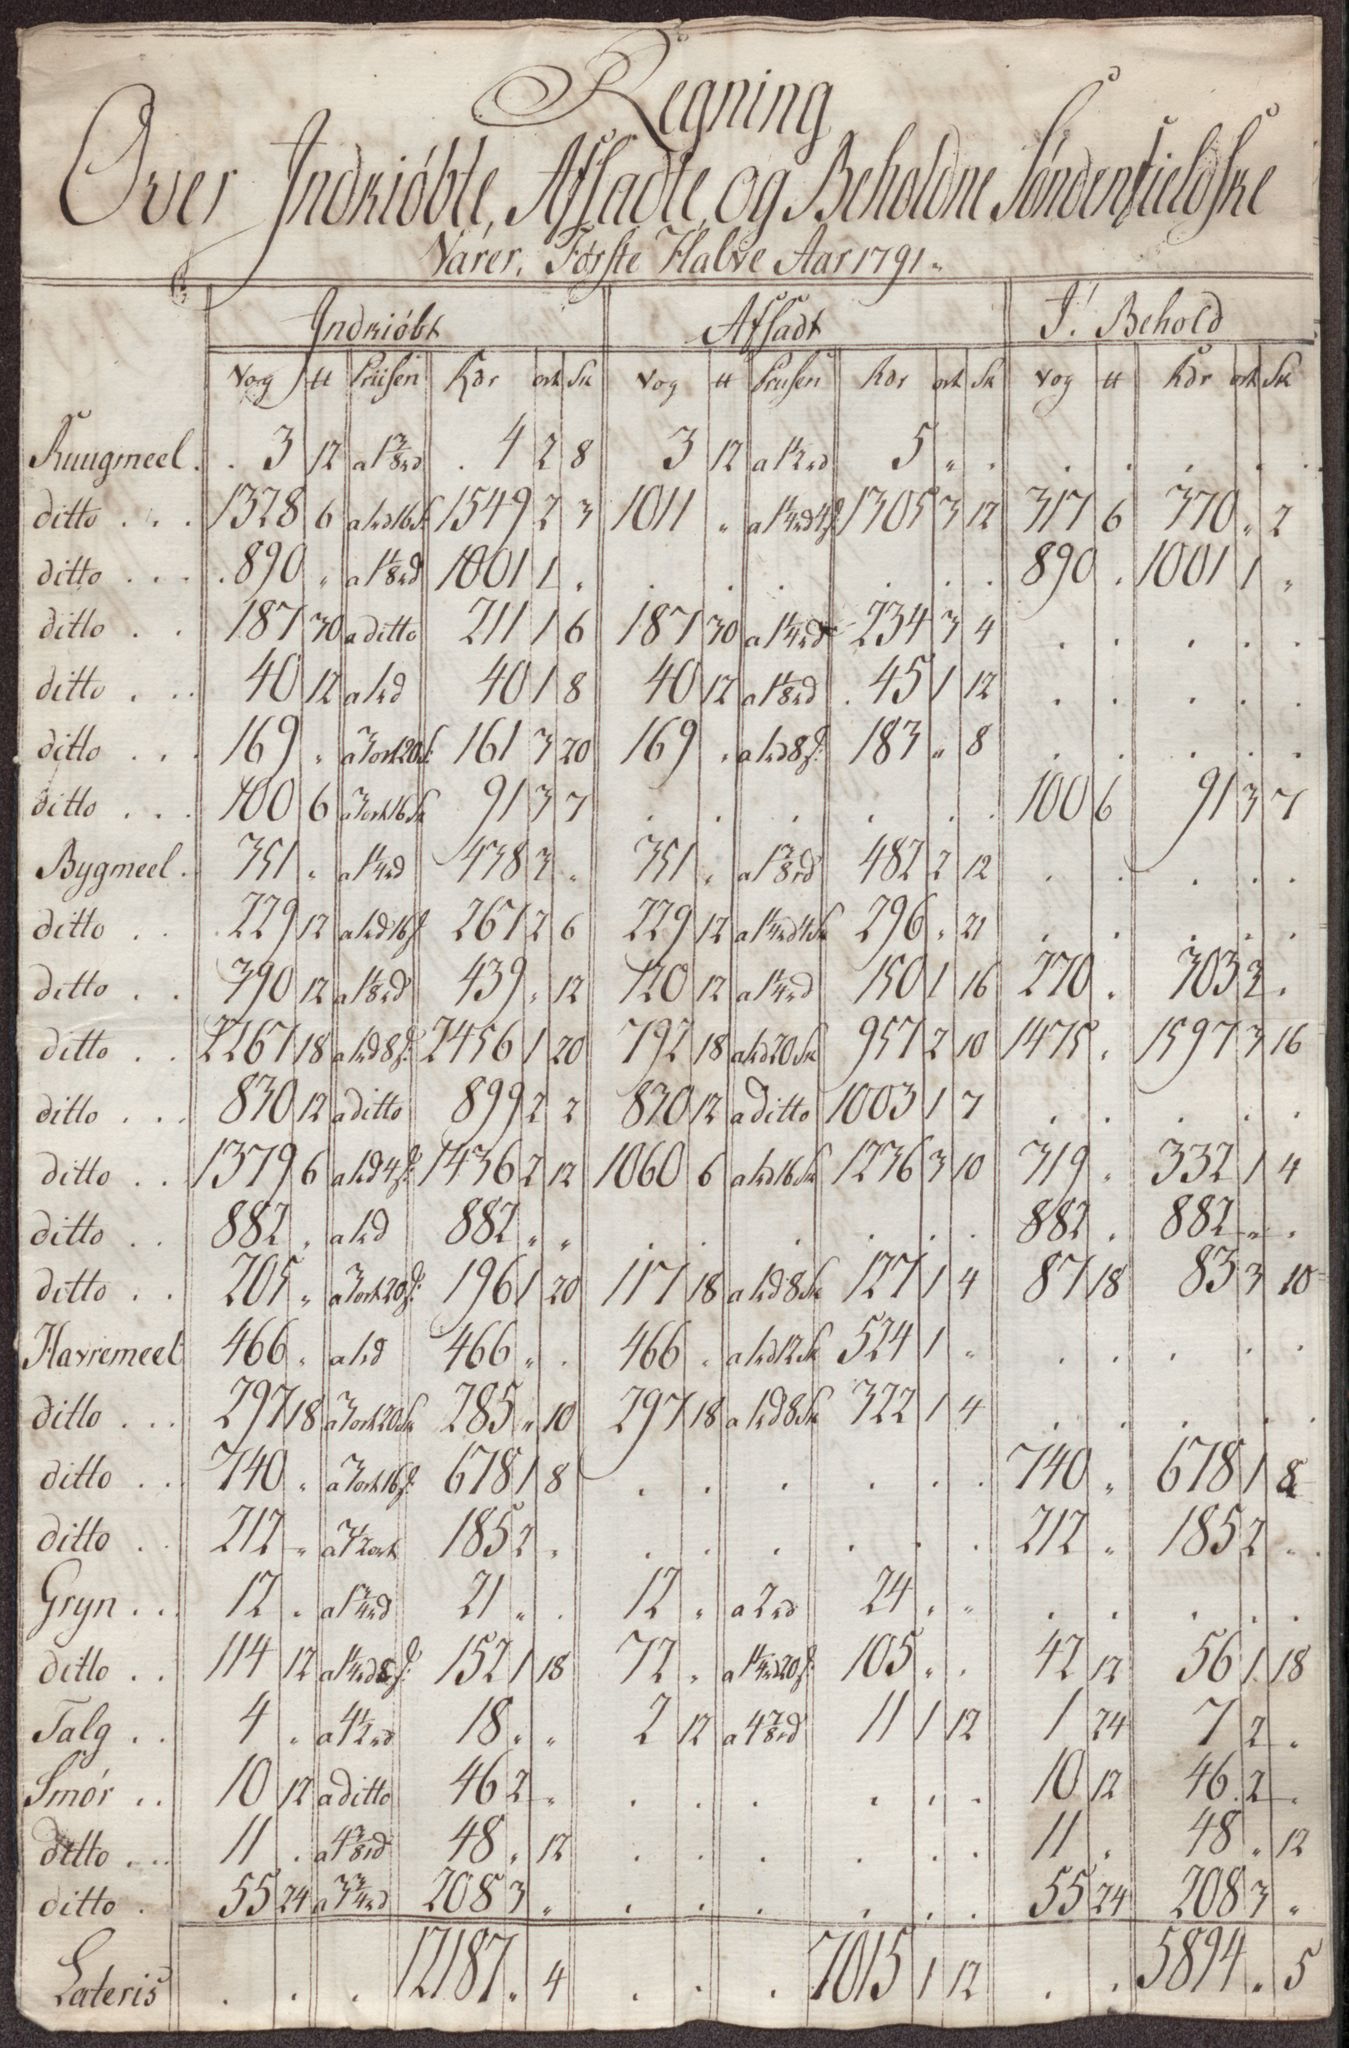 Regning
Over Indkiöbte, Afsadte, og Beholdne Söndenfieldske
Varer, Første Halve Aar 1791.
Indkiöbt Afsadt I Behold
Vog tt Priisen Rdr ort Sk Vog tt Priisen Rdr ort Sk Vog tt Rdr ort Sk
Ruugmeel . . 3 12 a 1 3/8 rd . 4 2 8 3 12 a 1 1/2 rd 5 " . . . . . .
ditto . . . 1328 6 a 1rd 16 s 1549 2 3 1011 " a 1 1/4 rd 4 s 1305 3 12 317 6 370 " 2
ditto . . . . 890 " a 1 1/8 rd 1001 1 " . . . . . . 890 . 1001 1 "
ditto . . 187 30 a ditto 211 1 6 187 30 a 1 1/4 rd 234 3 4 . . . . .
ditto . . . 40 12 a 1rd 40 1 8 40 12 a 1 1/8 rd . 45 1 12 . . . . .
ditto . . . 169 " a 3 ort 20 s 161 3 20 169 " a 1rd 8 s 183 " 8 . . . . .
ditto . . . 100 6 a 3 ort 16 Sk 91 3 7 . . . . . . 100 6 91 3 7
Bygmeel . 351 " a 1 1/4 rd 438 3 " 351 " a 1 3/8 rd 482 2 12 . . . . .
ditto . . 229 12 a 1rd 16 s 267 2 6 229 12 a 1 1/4 rd 4 Sk 296 " 21 . . . . .
ditto . . 390 12 a 1 1/8 rd 439 " 12 120 12 a 1 1/4 rd 150 1 16 270 " 303 3 .
ditto . . 2267 18 a 1rd 8 s 2456 1 20 792 18 a 1rd 20 Sk 957 2 10 1475 " 1597 3 16
ditto . . . 830 12 a ditto 899 2 2 830 12 a ditto 1003 1 7 . . . . .
ditto . . 1379 6 a 1rd 4 s 1436 2 12 1060 6 a 1rd 16 Sk 1236 3 10 319 " 332 1 4
ditto . . 882 " a 1rd 882 " " . . . . . . 882 . 882 " .
ditto . . 205 " a 3 ort 20 s 196 1 20 117 18 a 1rd 8 Sk 127 1 4 87 18 83 3 10
Havremeel 466 " a 1rd 466 " . 466 " a 1rd 12 Sk 524 1 " . . . . .
ditto . . . 297 18 a 3 ort 20 Sk 285 " 10 297 18 a 1rd 8 Sk 322 1 4 . . . . .
ditto . . . 740 " a 3 ort 16 s 678 1 8 . . . . . . 740 " 678 1 8
ditto . . 212 " a 3 1/2 ort 185 2 " . . . . . . 212 " 185 2 "
Gryn . . . 12 " a 1 3/4 rd 21 " . 12 " a 2 rd 24 " " . . . . .
ditto . . 114 12 a 1 1/4 rd 8 s 152 1 18 72 " a 1 1/4 rd 20 s 105 " . 42 12 56 1 18
Talg . . 4 " a 4 1/2 rd 18 " " 2 12 a 4 7/8 rd 11 1 12 1 24 7 2 "
Smör . . 10 12 a ditto 46 2 " . . . . . . 10 12 46 2 .
ditto . . . 11 . a 4 3/8 rd 48 " 12 . . . . . . 11 " 48 " 12
ditto . 55 24 a 3 3/4 rd 208 3 " . . . . . . 55 24 208 3 "
Lateris . . . 12187 " 4 . . . 7015 1 12 . . 5894 " 5